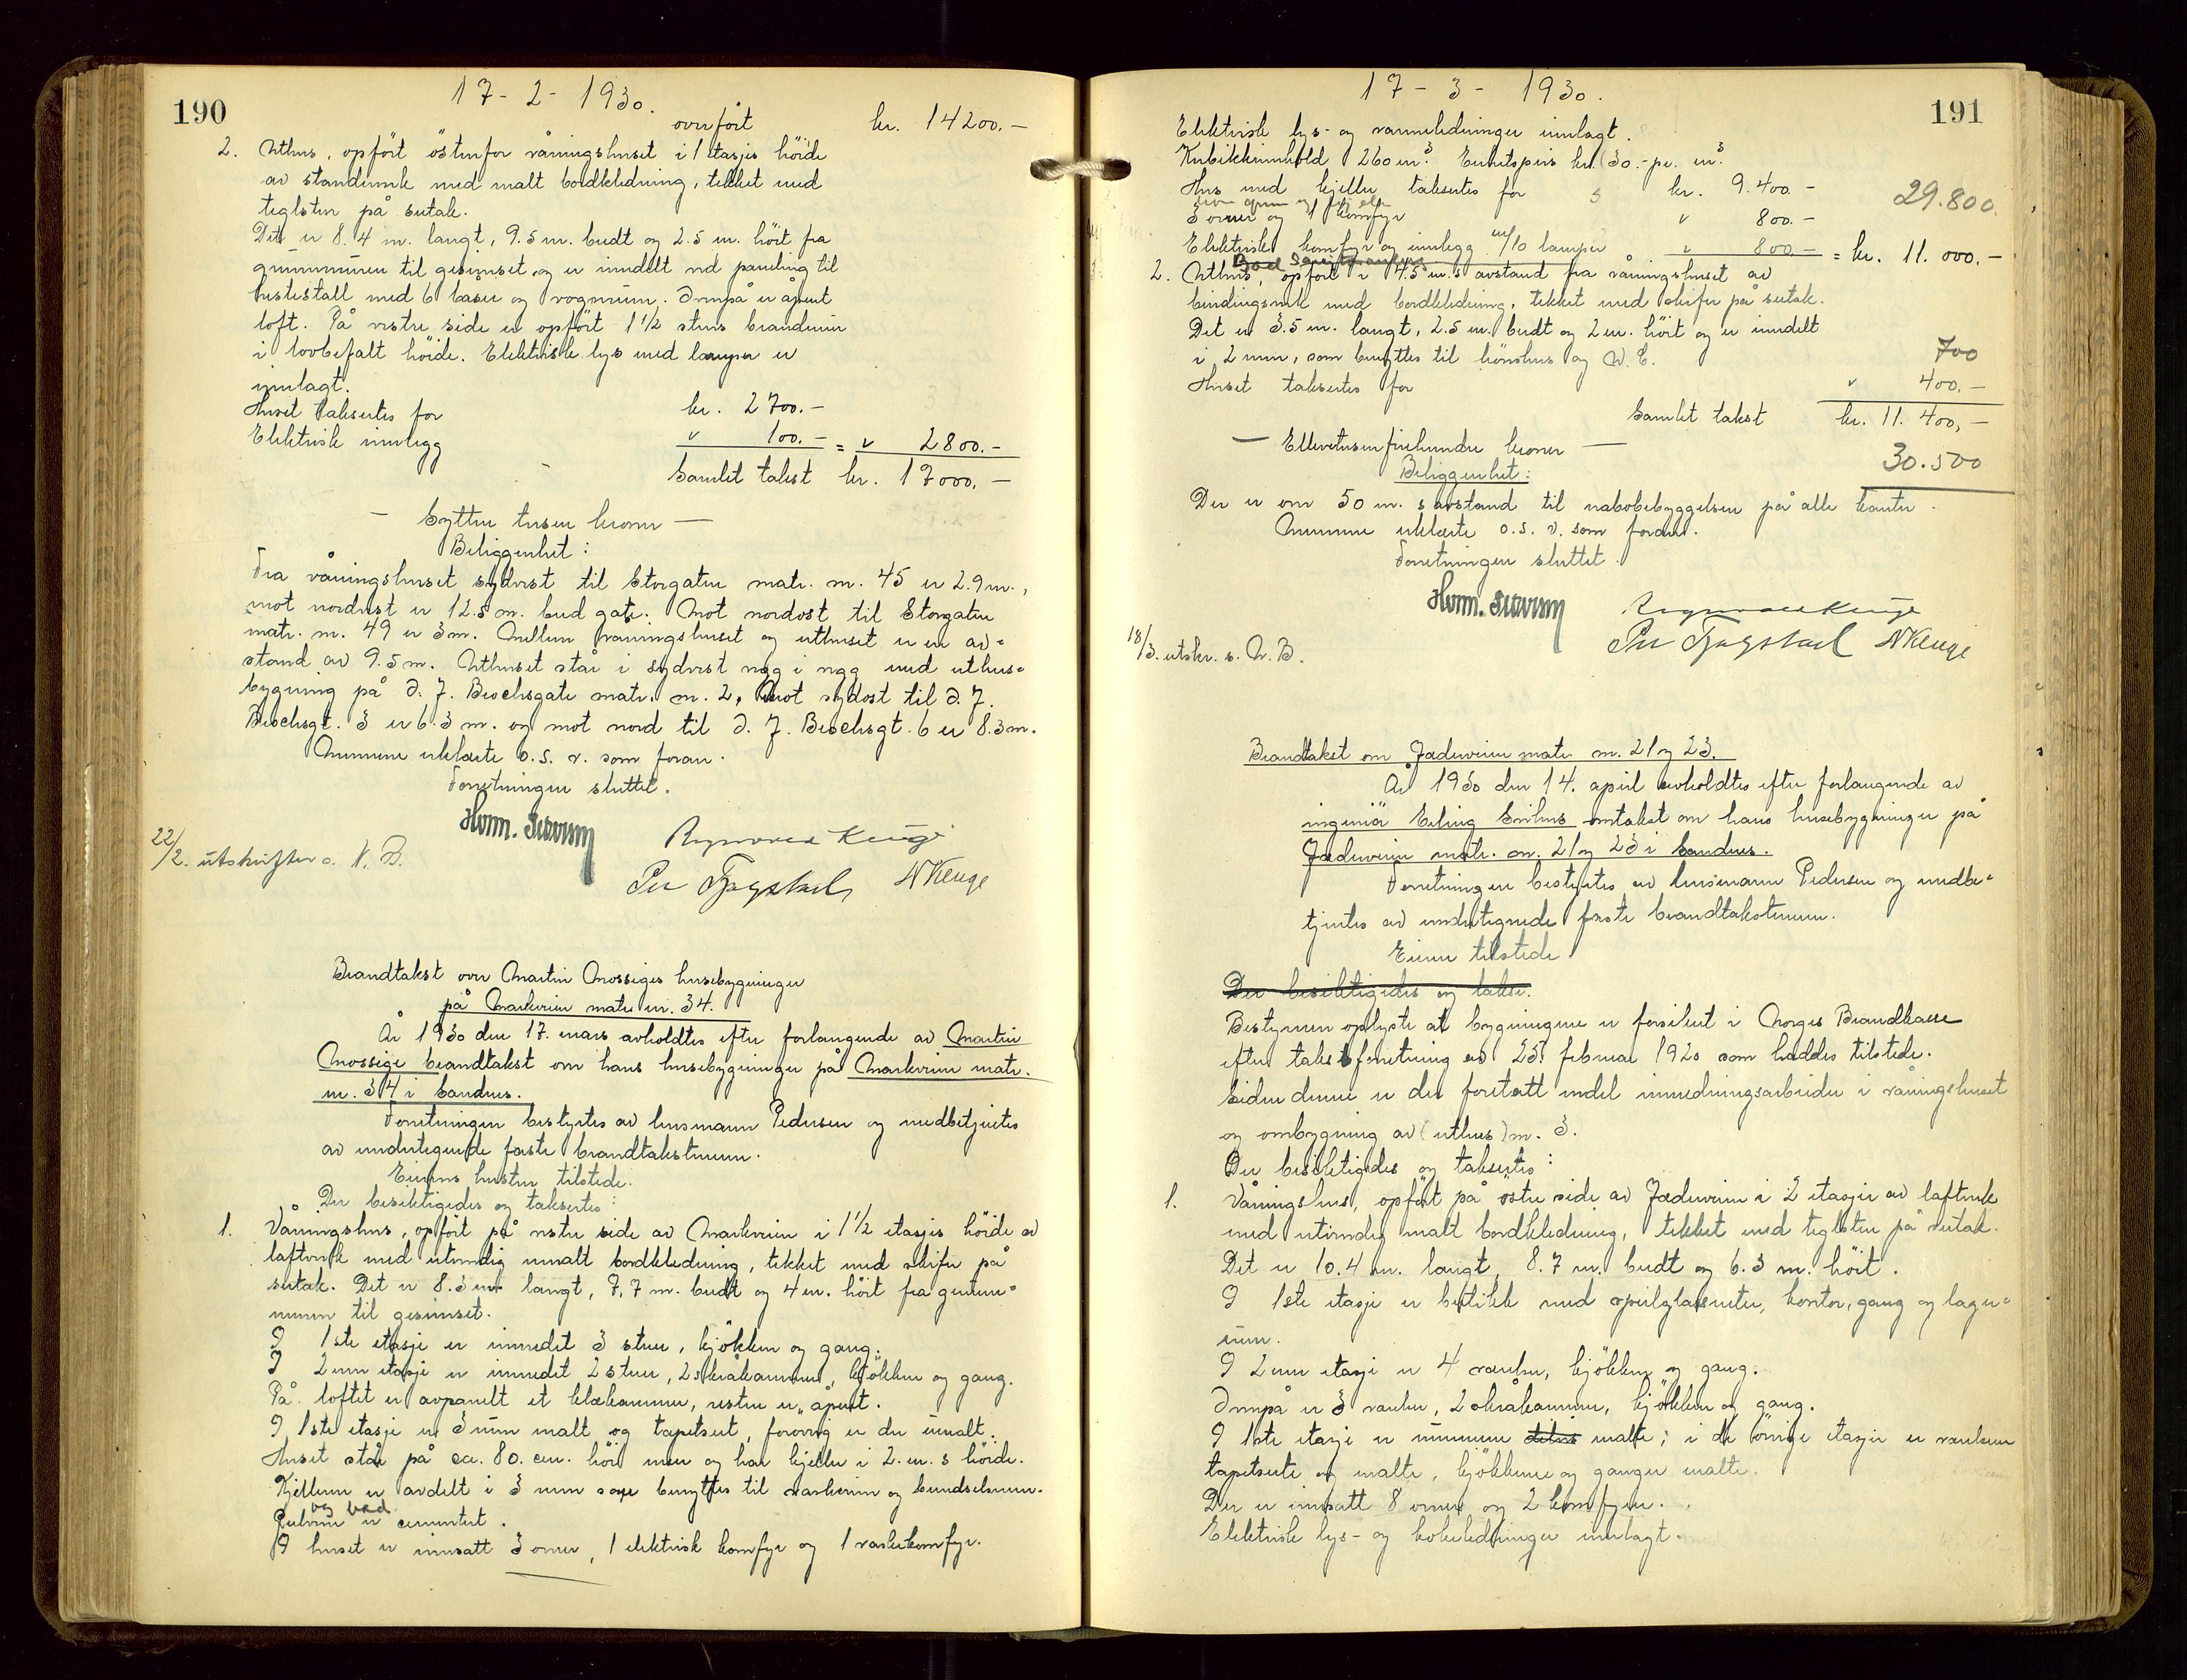 190
17-2-1930.
overført kr. 14200.-
2. Uthus, opfört östenfor våningshuset i 1 etasjes höide
av standverk med malt bordkledning, tekket med
teglsten på sutak.
Det er 8.4 m. langt, 9.5 m. bredt og 2.5 m. höit fra
grunnmuren til gesimset og er inndelt ved paneling til
hestestall med 6 båser og vognrum. Ovenpå er åpent
loft. På vestre side er opfört 1½ stens brandmur
i lovbefalt höide. Elektrisk lys med lamper er
innlagt.
Huset takseres for kr. 2700.-
Elektrisk innlegg " 100.- = " 2800.-
Samlet takst kr. 17000.-
- Sytten tusen kroner -
Beliggenhet:
Fra våningshuset sydvest til Storgaten matr. nr. 45 er 2.9 m.,
mot nordvest er 12.5 m. bred gate. Mot nordost til Storgaten
matr. nr. 49 er 3 m. Mellem våningshuset og uthuset er en av-
stand av 9.5 m. Uthuset står i sydvest rygg i rygg med uthus-
bygning på J. F. Brochsgate matr. nr. 2. Mot sydost til J. F.
Brochsgt. 3 er 6.3 m. og mot nord til J. F. Brochsgt. 6 er 8.3 m.
Mennene erklærte o.s.v. som foran.
Forretningen sluttet.
22/2. utskrifter s. N. B.
Brandtakst over Martin Mossiges husebygninger
på Markveien matr. nr. 34.
År 1930 den 17. mars avholdtes efter forlangende av Martin
Mossige brandtakst om hans husebygninger på Markveien matr.
nr. 34 i Sandnes.
Forretningen bestyrtes av lensmann Pedersen og medbetjentes
av undertegnede faste brandtakstmenn.
Eierens hustru tilstede.
Der besiktigedes og taksertes:
1. Våningshus, opfört på vestre side av Markveien i 1½ etasjes höide av
laftverk med utvendig umalt bordkledning, tekket med skifer på
sutak. Det er 8.3 m. langt, 7.7 m. bredt og 4 m. höit fra grunn-
muren til gesimset.
I 1ste etasje er innredet 3 stuer, kjökken og gang.
I 2nen etasje er innredet 2 stuer, 2 skråkammer, kjökken og gang.
På loftet er avpanelt et klækammer, resten er åpent.
I 1ste etasje er 3 rum malt og tapetsert, forövrig er der umalt.
Huset står på ca. 80. cm. höi mur og har kjeller i 2. m.s höide.
Kjelleren er avdelt i 3 rum som benyttes til vaskerum og brendselsrum.
og bad
Gulvene er cementert.
I huset er innsatt 3 ovner, 1 elektrisk komfyr og 1 vaskekomfyr.
191
17-3-1930.
Elektrisk lys- og varmeledninger innlagt.
Kubikkinnhold 260 m³. Enhetspris kr. 30.- pr. m³.
Hus med kjeller takseres for kr. 9.400.-
29.800.
3 ovner og 1 komfyr " 800.-
Elektrisk komfyr og innlegg m/10 lamper " 800.- = kr. 11.000.-
2. Uthus, opfört i 4.5 m.s avstand fra våningshuset av
bindingsverk med bordkledning, tekket med skifer på sutak.
Det er 3.5 m. langt, 2.5 m. bredt og 2 m. höit og er inndelt
i 2 rum, som benyttes til hönshus og W. C.
700
Huset takseres for " 400.-
Samlet takst kr. 11.400,-
- Ellevetusenfirehundre kroner -
30.500
Beliggenhet:
Der er om 50 m.s avstand til nabobebyggelsen på alle kanter.
Mennene erklærte o.s.v. som foran.
Forretningen sluttet.
18/3. utskr. s. N. B.
Brandtakst om Jæderveien matr. nr. 21 og 23.
År 1930 den 14. april avholdtes efter forlangende av
ingeniör Erling omtakst om hans husebygninger på
Jæderveien matr. nr. 21 og 23 i Sandnes.
Forretningen bestyrtes av lensmann Pedersen og medbe-
tjentes av undertegnede faste brandtakstmenn.
Eieren tilstede
Der besiktigedes og takser.
Bestyreren oplyste at bygningene er forsikret i Norges Brandkasse
efter takstforretning av 25 februar 1920 som haddes tilstede.
Siden denne er der foretatt endel innredningsarbeider i våningshuset
og ombygning av (uthus) nr. 3.
Der besiktigedes og taksertes:
1. Våningshus, opfört på östre side av Jæderveien i 2 etasjer av laftverk
med utvendig malt bordkledning, tekket med teglsten på sutak.
Det er 10.4 m. langt, 8.7 m. bredt og 6.3 m. höit.
I 1ste etasje er butikk med speilglassruter, kontor, gang og lager-
rum.
I 2nen etasje er 4 værelser, kjökken og gang.
Ovenpå er 3 værelser, 2 skråkammer, kjökken og gang.
I 1ste etasje er rummene malte; i de övrige etasjer er værelsene
tapetserte og malte, kjökkener og ganger malte.
Der er innsatt 8 ovner og 2 komfyrer.
Elektrisk lys- og kokeledninger innlagt.